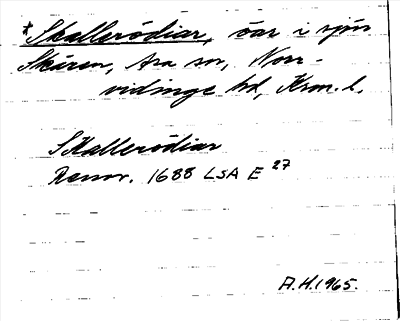 *Skalleródiar, öar i sjön
Skären, Asa sn, Norr-
vidinge hd, Kron. l.
SKalleródiar
Rannr. 1688 LSA E 27
A.H. 1965.